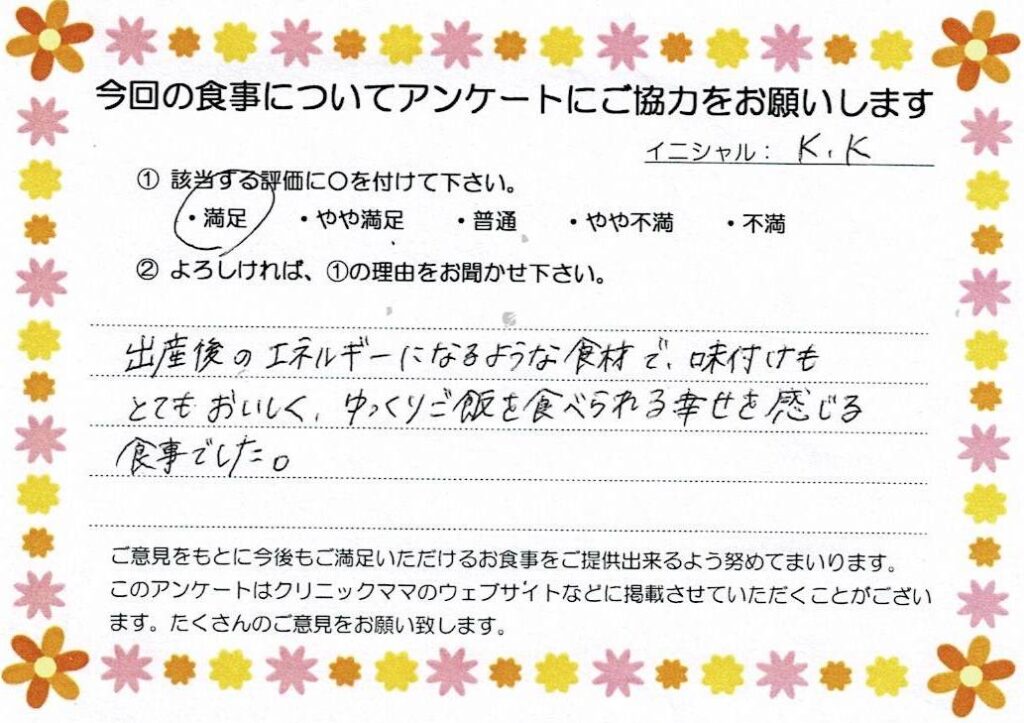 今回の食事についてアンケートにご協力をお願いします
イニシャル： K.K
① 該当する評価に〇を付けて下さい。
・満足 ・やや満足 ・普通 ・やや不満 ・不満
② よろしければ、①の理由をお聞かせ下さい。
出産後のエネルギーになるような食材で、味付けも
とてもおいしく、ゆっくりご飯を食べられる幸せを感じる
食事でした。
ご意見をもとに今後もご満足いただけるお食事をご提供出来るよう努めてまいります。
このアンケートはクリニックママのウェブサイトなどに掲載させていただくことがござい
ます。たくさんのご意見をお願い致します。